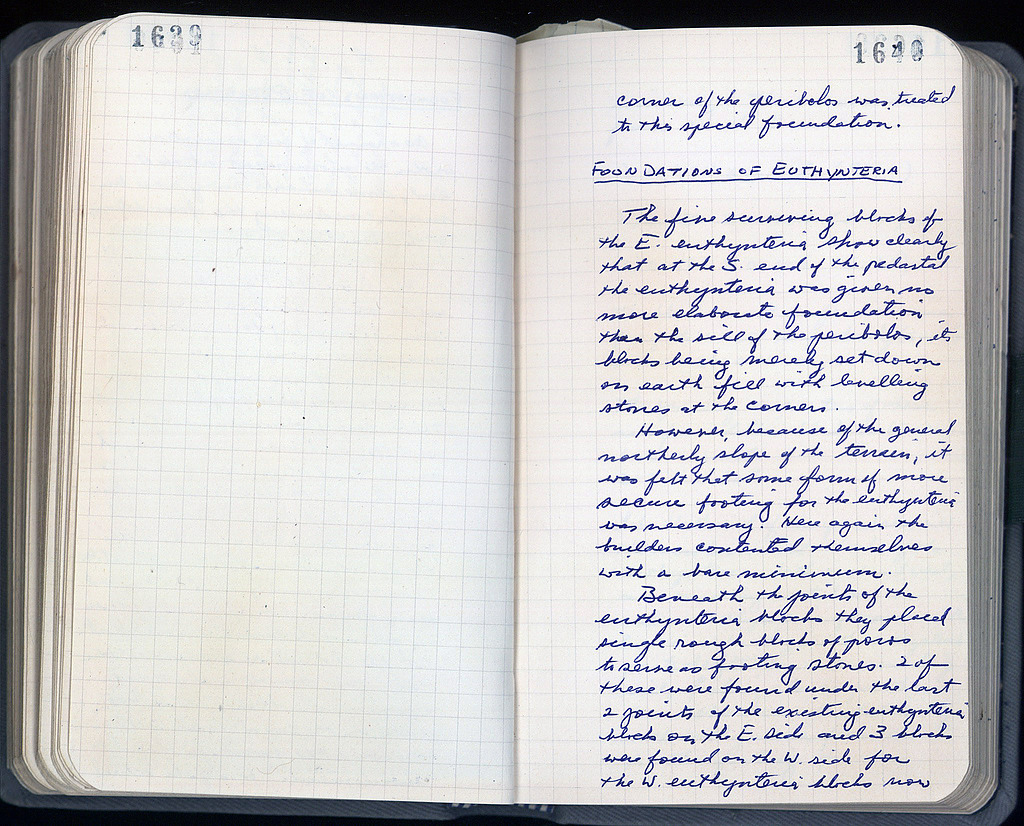 1639
1640
corner of the peribolos was treated
to this special foundation.
FOUNDATIONS OF EUTHYNTERIA
The five surviving blocks of
the E. euthynteria show clearly
that at the S. end of the pedastal
the euthynteria was given no
more elaborate foundation
than the sill of the peribolos, its
blocks being merely set down
on earth fill with levelling
stones at the corners.
However, because of the general
northerly slope of the terrain, it
was felt that some form of more
secure footing for the euthynteria
was necessary. Here again the
builders contented themselves
with a bare minimum.
Beneath the joints of the
euthynteria blocks they placed
single rough blocks of poros
to serve as footing stones. 2 of
these were found under the last
2 joints of the existing euthynteria
blocks on the E. side and 3 blocks
were found on the W. side for
the W. euthynteria blocks now